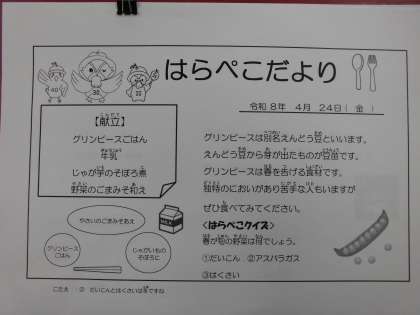 はらぺこだより
令和 8年 4月 24日( 金 )
【献立】
グリンピースごはん
牛乳
じゃが芋のそぼろ煮
野菜のごまみそ和え
グリンピースは別名えんどう豆といいます。
えんどう豆から芽が出たものが豆苗です。
グリンピースは春を告げる食材です。
独特のにおいがあり苦手な人もいますが
ぜひ食べてみてください。
<はらぺこクイズ>
春が旬の野菜は何でしょう。
①だいこん ②アスパラガス
③はくさい
やさいのごまみそあえ
グリーンピース
ごはん
じゃがいもの
そぼろに
こたえ : ② だいこんとはくさいは冬ですね